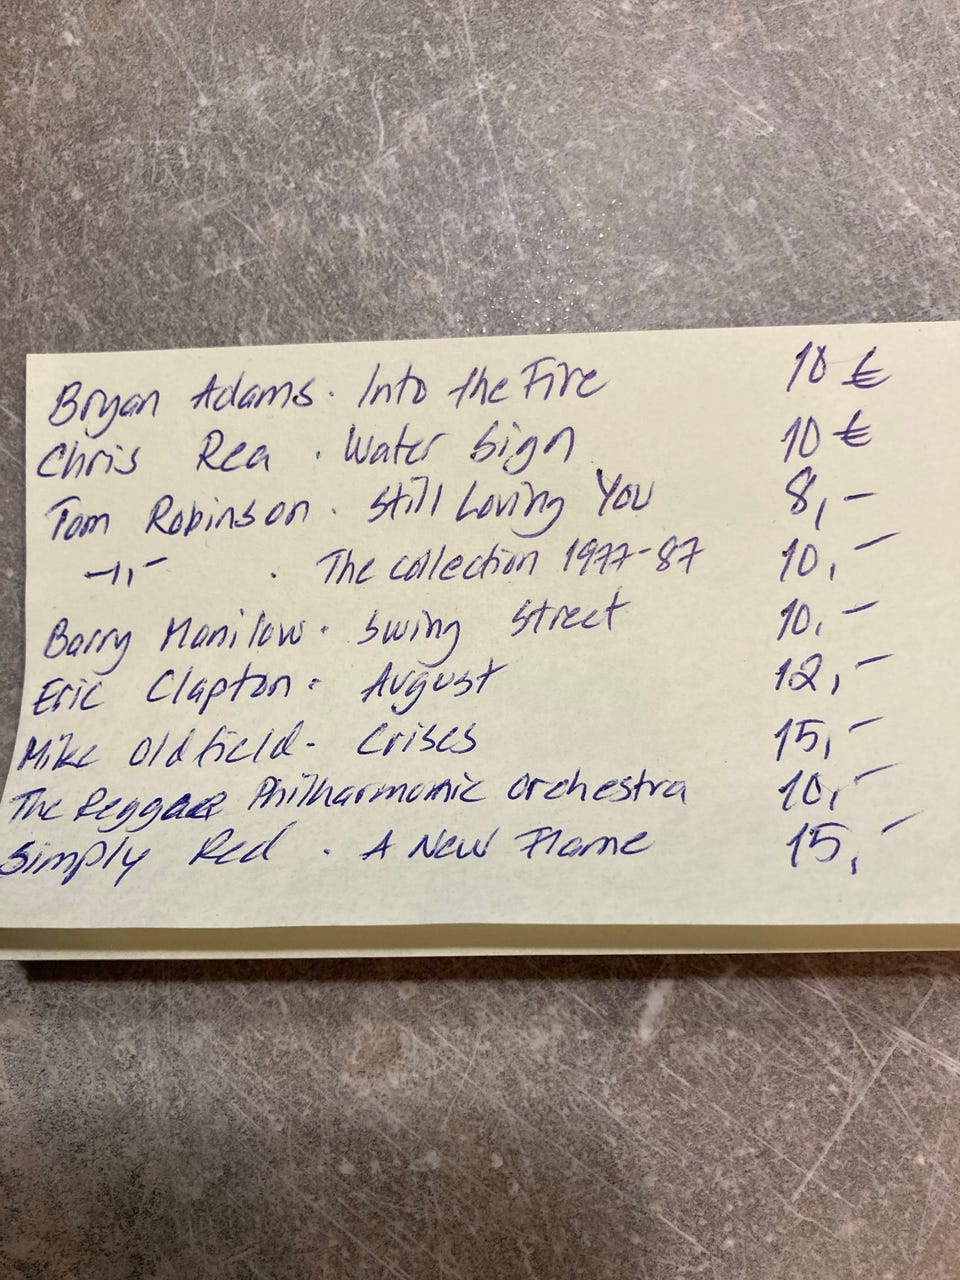 Bryan Adams. Into the Fire 10 €
Chris Rea . Water Sign 10 €
Tom Robinson . Still Loving You 8,-
-"- . The collection 1977-87 10,-
Barry Manilow. Swing Street 10,-
Eric Clapton. August 12,-
Mike Oldfield- Crises 15,-
The Reggae Philharmonic Orchestra 10,-
Simply Red . A New Flame 15,-